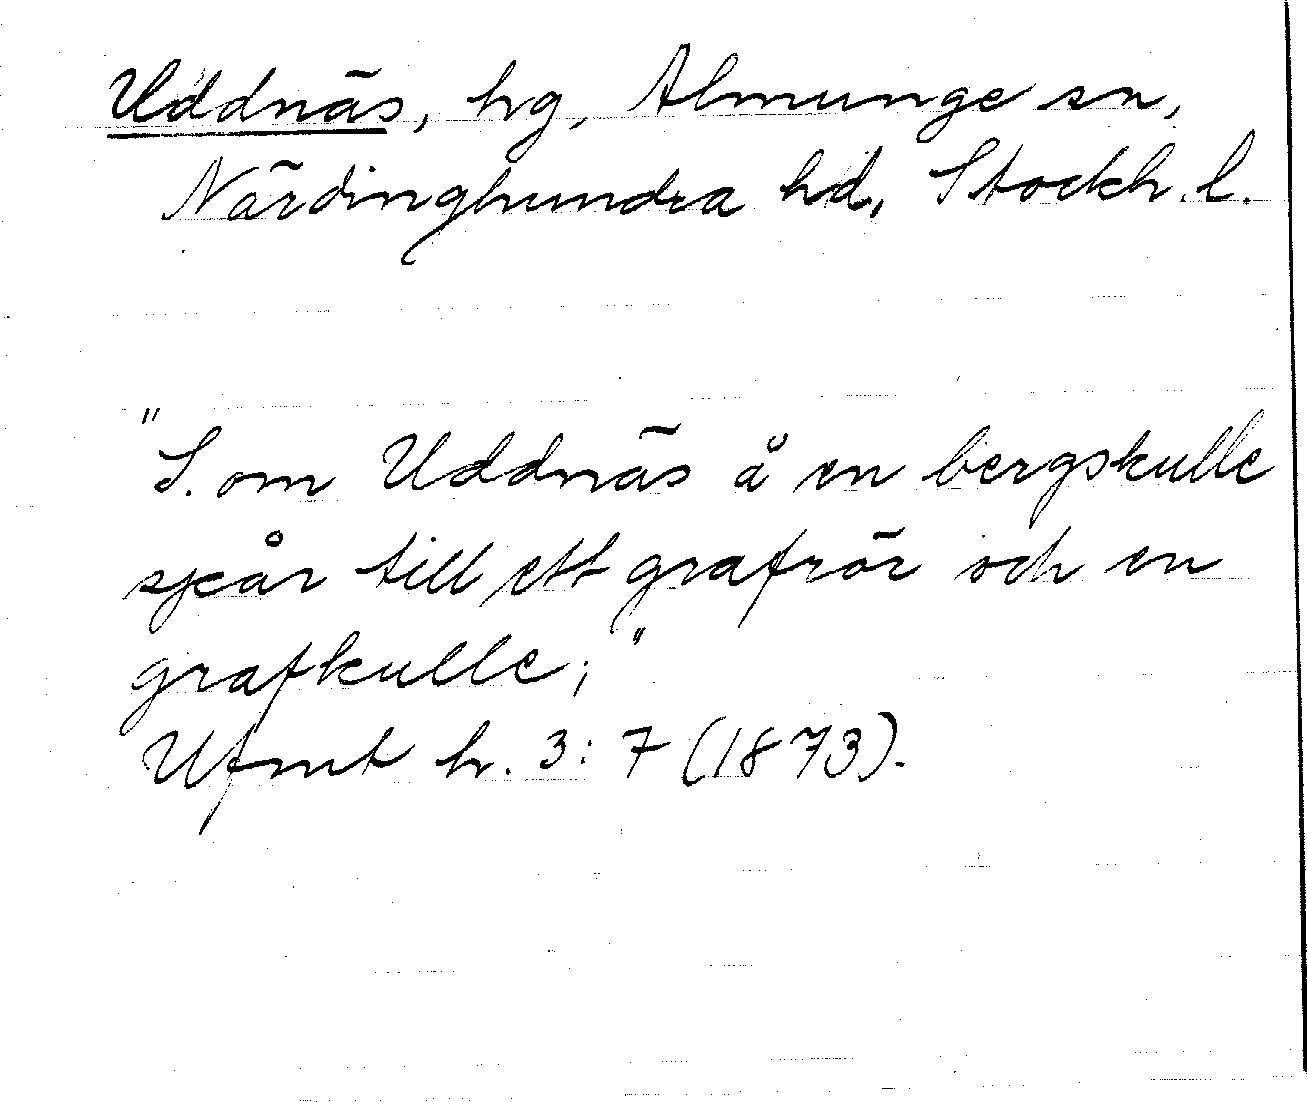 Uddnäs, hg, Almunge sn,
Närdinghundra hd, Stockh. l.
"S. om Uddnäs å en bergskulle
spår till ett grafrör och en
grafkulle;"
Ufmt h. 3:7 (1873).